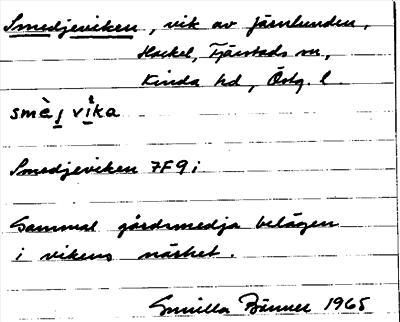 Smedjeviken, vik av Järnlunden,
Hackel, Tjärstads sn,
Kinda hd, Östg. l.
smèj vika
Smedjeviken 7F9i
Gammal gårdsmedja belägen
i vikens närhet.
Gunilla 1965